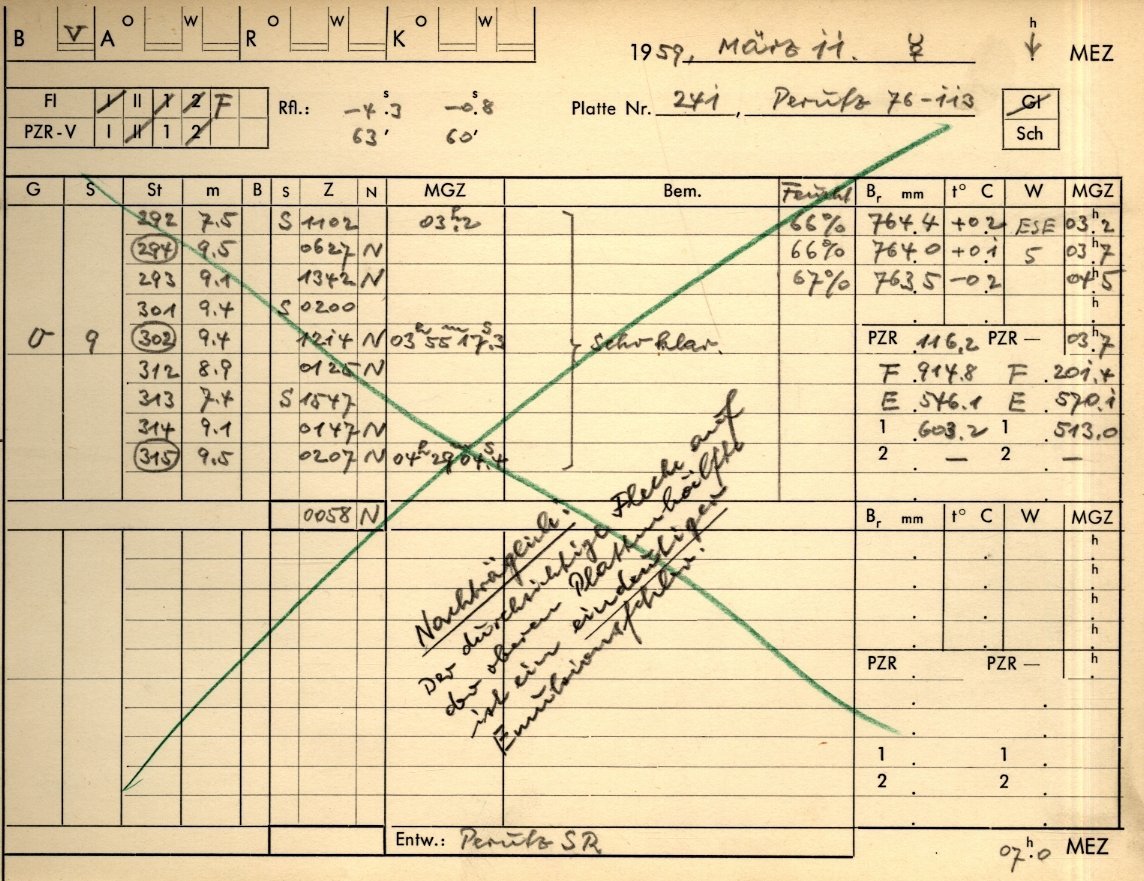 B V A O W R O W K O W
1959, März 11. ☿ h ↓ MEZ
FI I II 1 2 F Rfl.: -4.s3 -0.s8 Platte Nr. 241, Perutz 76-113 Gl
PZR-V I II 1 2 63' 60' Sch
G S St m B S Z N MGZ Bem. Feucht Br mm t° C W MGZ
292 7.5 S 1102 03h.2 66% 764.4 +0.2 ESE 03h.2
294 9.5 0627 N 66% 764.0 +0.1 5 03h.7
293 9.1 1342 N 67% 763.5 -0.2 04h.5
301 9.4 S 0200 h
σ 9 302 9.4 1214 N 03h 55m 17s.3 Sehr klar. PZR 116.2 PZR — 03h.7
312 8.9 0125 N F 914.8 F 201.4
313 7.4 S 1547 E 546.1 E 570.1
314 9.1 0147 N 1 603.2 1 513.0
315 9.5 0207 N 04h 29m 04s.4 2 — 2 —
0058 N Br mm t° C W MGZ
h
h
h
h
Nachträglich:
Der durchsichtige Fleck auf
der oberen Plattenhälfte
ist ein eindeutiger
Emulsionsfehler.
PZR PZR — h
1 1
2 2
Entw.: Perutz SR
07h.0 MEZ